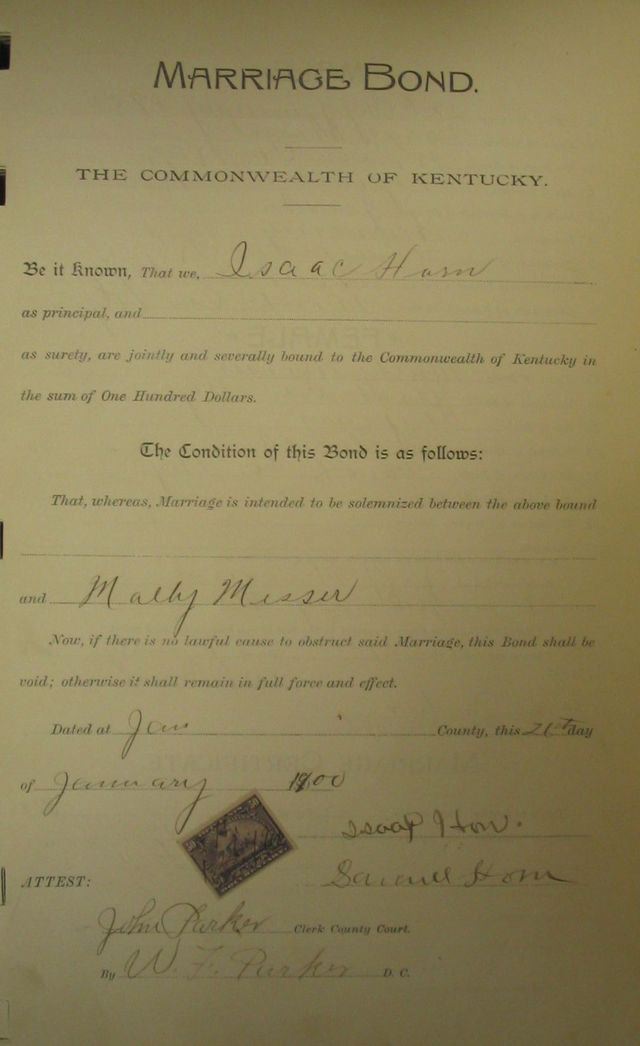 MARRIAGE BOND.
THE COMMONWEALTH OF KENTUCKY.
Be it Known, That we, Isaac Horn
as principal, and
as surety, are jointly and severally bound to the Commonwealth of Kentucky in
the sum of One Hundred Dollars.
The Condition of this Bond is as follows:
That, whereas, Marriage is intended to be solemnized between the above bound
and Messer
Now, if there is no lawful cause to obstruct said Marriage, this Bond shall be
void; otherwise it shall remain in full force and effect.
Dated at Jan County, this day
of January 1900
Horn
ATTEST:
John Parker Clerk County Court.
By W. F. Parker D. C.